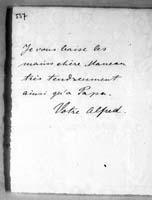 557
Je vous baise les
mains chère Maman
très tendrement
ainsi qu'à Papa.
Votre Alfred.